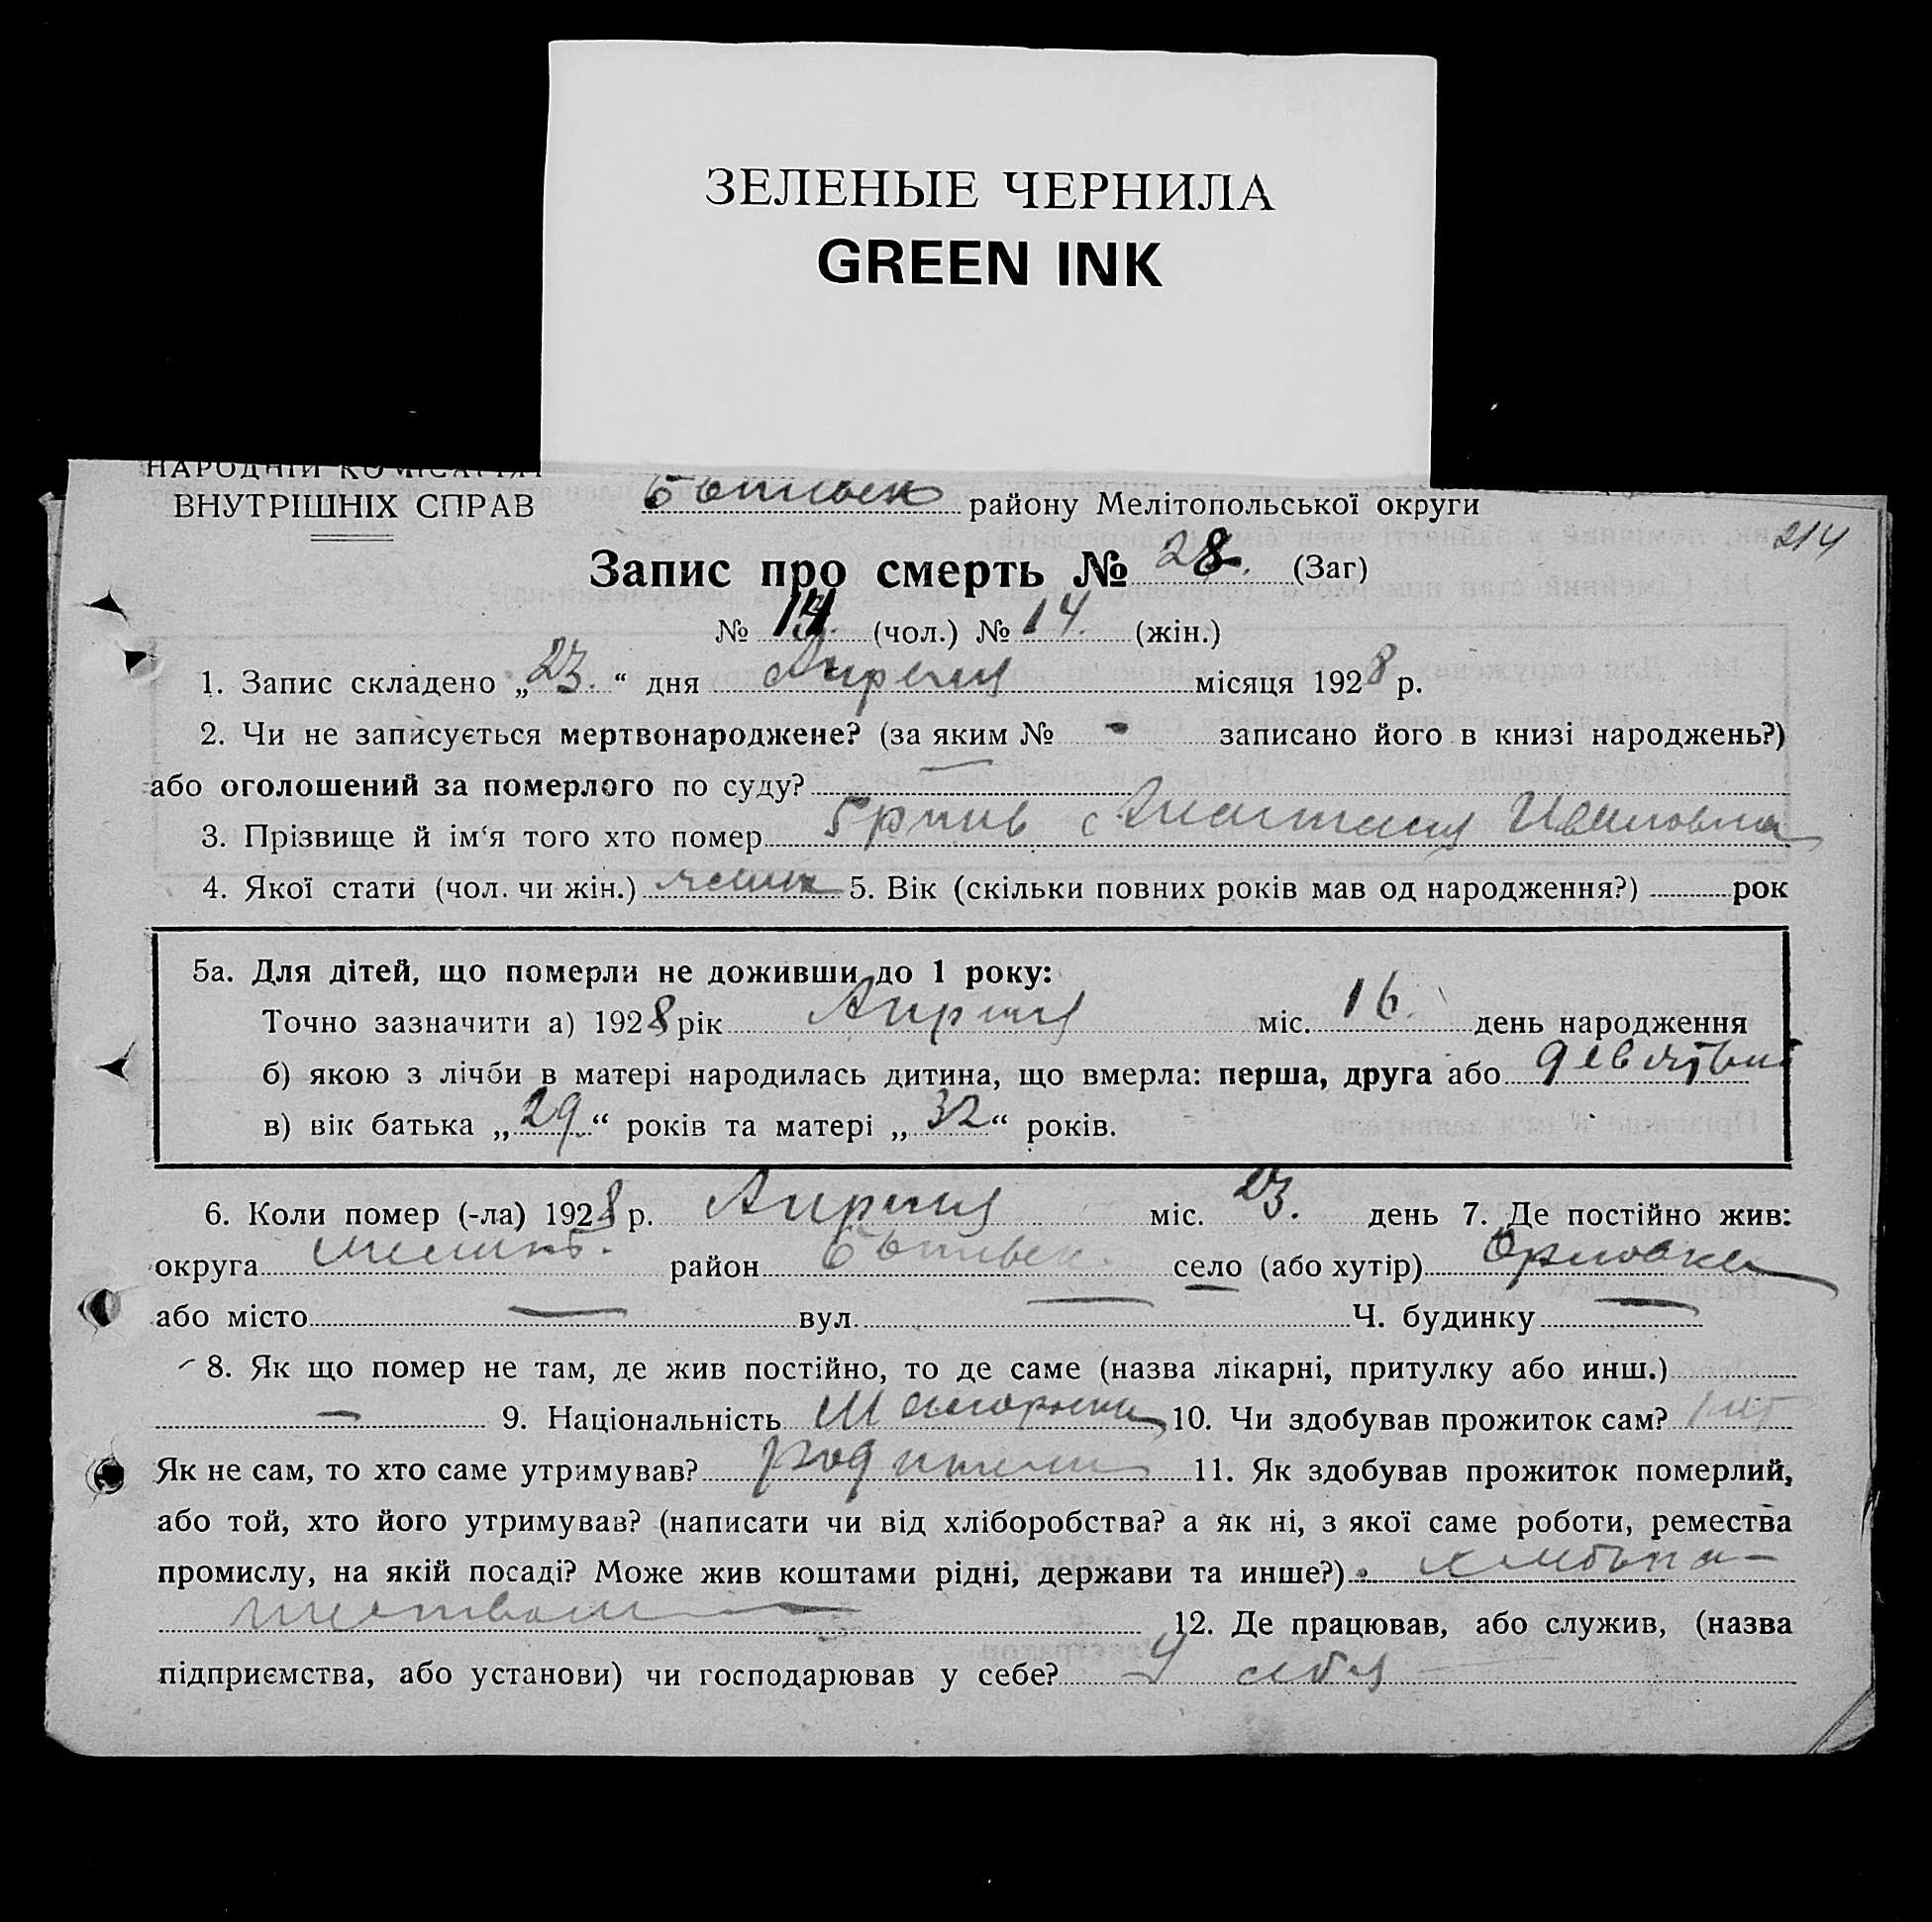 ЗЕЛЕНЫЕ ЧЕРНИЛА
GREEN INK
НАРОДНІЙ
ВНУТРІШНІХ СПРАВ району Мелітопольської округи
214
Запис про смерть № 28. (Заг)
№ (чол.) № 14. (жін.)
1. Запис складено „23.“ дня Апреля місяця 1928 р.
2. Чи не записується мертвонароджене? (за яким № - записано його в книзі народжень?)
або оголошений за померлого по суду? —
3. Прізвище й ім‘я того хто помер Анастасия Ивановна
4. Якої стати (чол. чи жін.) 5. Вік (скільки повних років мав од народження?) рок
5а. Для дітей, що померли не доживши до 1 року:
Точно зазначити а) 1928 рік Апреля міс. 16. день народження
б) якою з лічби в матері народилась дитина, що вмерла: перша, друга або
в) вік батька „29“ років та матері „32“ років.
6. Коли помер (-ла) 1928 р. Апреля міс. 23. день 7. Де постійно жив:
округа район село (або хутір) Орловка
або місто — вул. — Ч. будинку —
8. Як що помер не там, де жив постійно, то де саме (назва лікарні, притулку або инш.)
— 9. Національність 10. Чи здобував прожиток сам? нет
Як не сам, то хто саме утримував? родители 11. Як здобував прожиток померлий,
або той, хто його утримував? (написати чи від хліборобства? а як ні, з якої саме роботи, ремества
промислу, на якій посаді? Може жив коштами рідні, держави та инше?)
12. Де працював, або служив, (назва
підприємства, або установи) чи господарював у себе? У себя